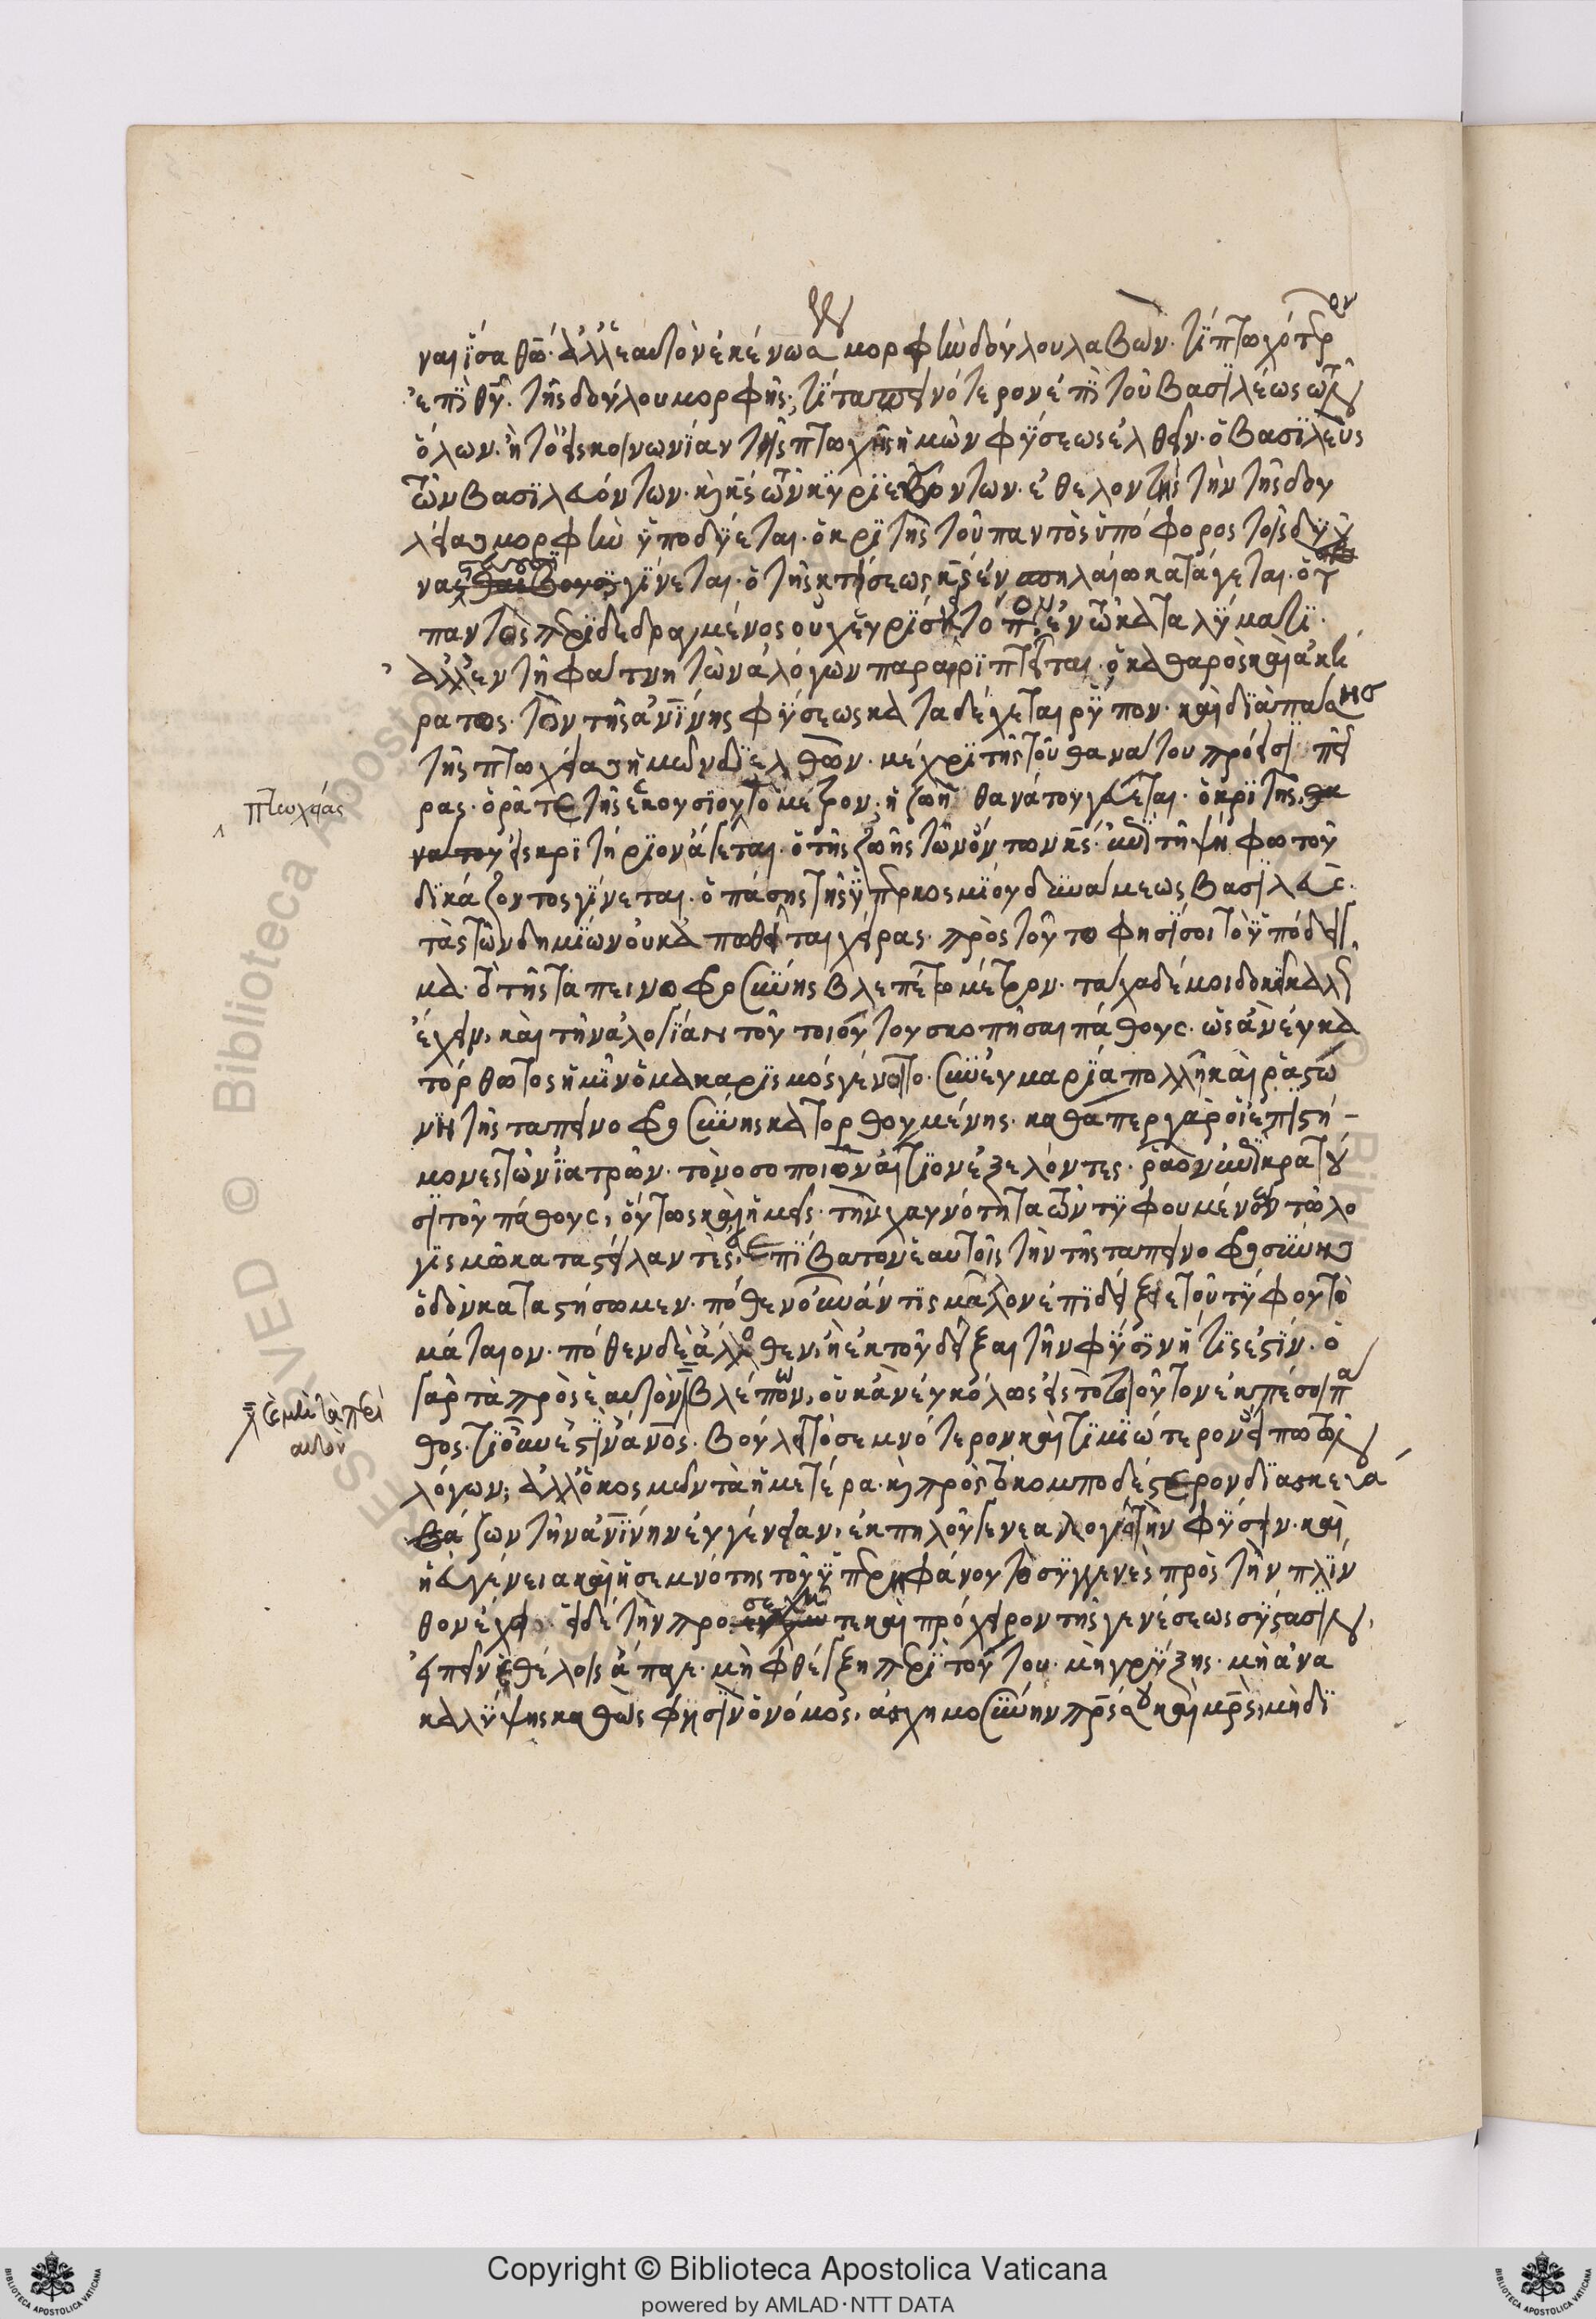 ναι ἴσα θῶ. ἀλλ' ἑαυτὸν ἐκένωσε μορφὴν δούλου λαβών. τί πτωχότερον
ἐπὶ θυ. τῆς δούλου μορφῆς; τί ταπεινότερον ἐπὶ τοῦ βασιλέως τῶν
ὅλων. ἢ τὸ εἰς κοινωνίαν τῆς πτωχῆς ἡμῶν φύσεως ἐλθεῖν. ὁ βασιλεὺς
τῶν βασιλευόντων. κ(αὶ) κς τῶν κυριευόντων. ἐθελοντὴς τὴν τῆς δου
λείας μορφὴν ὑποδύεται. ὁ κριτὴς τοῦ παντὸς ὑπόφορος τοῖς δυ
νασταῖς γίνεται. ὁ τῆς κτίσεως κς ἐν σπηλαίω κατάγεται. ὁ τοῦ
παντὸς περιδεδραγμένος οὐχ εὑρίσκει τόπον ἐν τῶ καταλύματι.
ἀλλ' ἐν τῆ φάτνη τῶν ἀλόγων παραρίπτεται. ὁ καθαρὸς καὶ ἀκή
ρατος. τὸν τῆς ἀνίνης φύσεως καταδέχεται ρύπον. καὶ διὰ πάσης
τῆς πτωχείας ἡμῶν διελθὼν. μέχρι τῆς τοῦ θανάτου πρόεισι πεί
ρας. ὁρᾶτε τῆς ἑκουσίου τὸ μέτρον. ἡ ζωὴ θανάτου γεύεται. ὁ κριτὴς
εἰς κριτήριον ἄγεται. ὁ τῆς ζωῆς τῶν ὄντων κς. ἐπὶ τῆ ψήφω τοῦ
δικάζοντος γίνεται. ὁ πάσης τῆς ὑπερκοσμίου δυνάμεως βασιλεύς.
τὰς τῶν δημίων οὐκ ἀπωθεῖται χεῖρας. πρὸς τοῦτο φησί σοι τὸ ὑπόδειγ
μα. ὁ τῆς ταπεινοφροσύνης βλεπέτω μέτρον. τάχα δέ μοι δοκεῖ καλῶς
ἔχειν, καὶ τὴν ἀλογίαν τοῦ τοιούτου σκοπῆσαι πάθους. ὡς ἂν εὐκα
τόρθωτος ἡμῖν ὁ μακαρισμός γένοιτο. σὺν εὐμαρία πολλῆ καὶ ῥαστώ
νη τῆς ταπεινοφροσύνης κατορθουμένης. καθάπερ γὰρ οἱ ἐπιστή-
μονες τῶν ἰατρῶν. τὸ νοσοποιὸν αἴτιον ἐξελόντες. ῥᾶον ἐπικρατοῦ
σι τοῦ πάθους, οὕτως καὶ ἡμεῖς. τὴν χαυνότητα τῶν τυφουμένων τῶ λο
γισμῶ καταστείλαντες, ἐπίβατον ἑαυτοῖς τὴν τῆς ταπεινοφροσύνης
ὁδὸν καταστήσωμεν. πόθεν οὖν ἄν τις μᾶλλον ἐπιδείξειε τοῦ τύφου τὸ
μάταιον. πόθεν δὲ ἄλλοθεν, ἢ ἐκ τοῦ δεῖξαι τὴν φύσιν ἥτις ἐστίν. ὁ
γὰρ τὰ πρὸς ἑαυτὸν βλέπων, οὐκ ἂν εὐκόλως εἰς τὸ τοιοῦτον ἐκπέσοι πά
θος. τί οὖν ἐστὶν ἀνος. βούλει τὸ σεμνότερον καὶ τιμιώτερον εἴπω τῶν
λόγων; ἀλλ' ὁ κοσμῶν τὰ ἡμέτερα. κ(αὶ) πρὸς τὸ κομποδέστερον διασκευά
ζων τὴν ἀνίνην εὐγένειαν, ἐκ πηλοῦ γενεαλογεῖ τὴν φύσιν. καὶ
ἡ εὐγένεια καὶ ἡ σεμνότης τοῦ ὑπερηφάνου τὸ συγγενὲς πρὸς τὴν πλίν
θον ἔχει. εἰ δὲ τὴν προσεχῆ τε καὶ πρόχειρον τῆς γενέσεως σύστασιν,
εἰπεῖν ἐθέλοις ἄπαγε. μὴ φθέγξη περὶ τούτου. μὴ γρύξης. μὴ ἀνα
καλύψης καθὼς φησὶν ὁ νόμος, ἀσχημοσύνην πρς σου καὶ μρς, μὴ δι
πτωχείας
αυτὸν